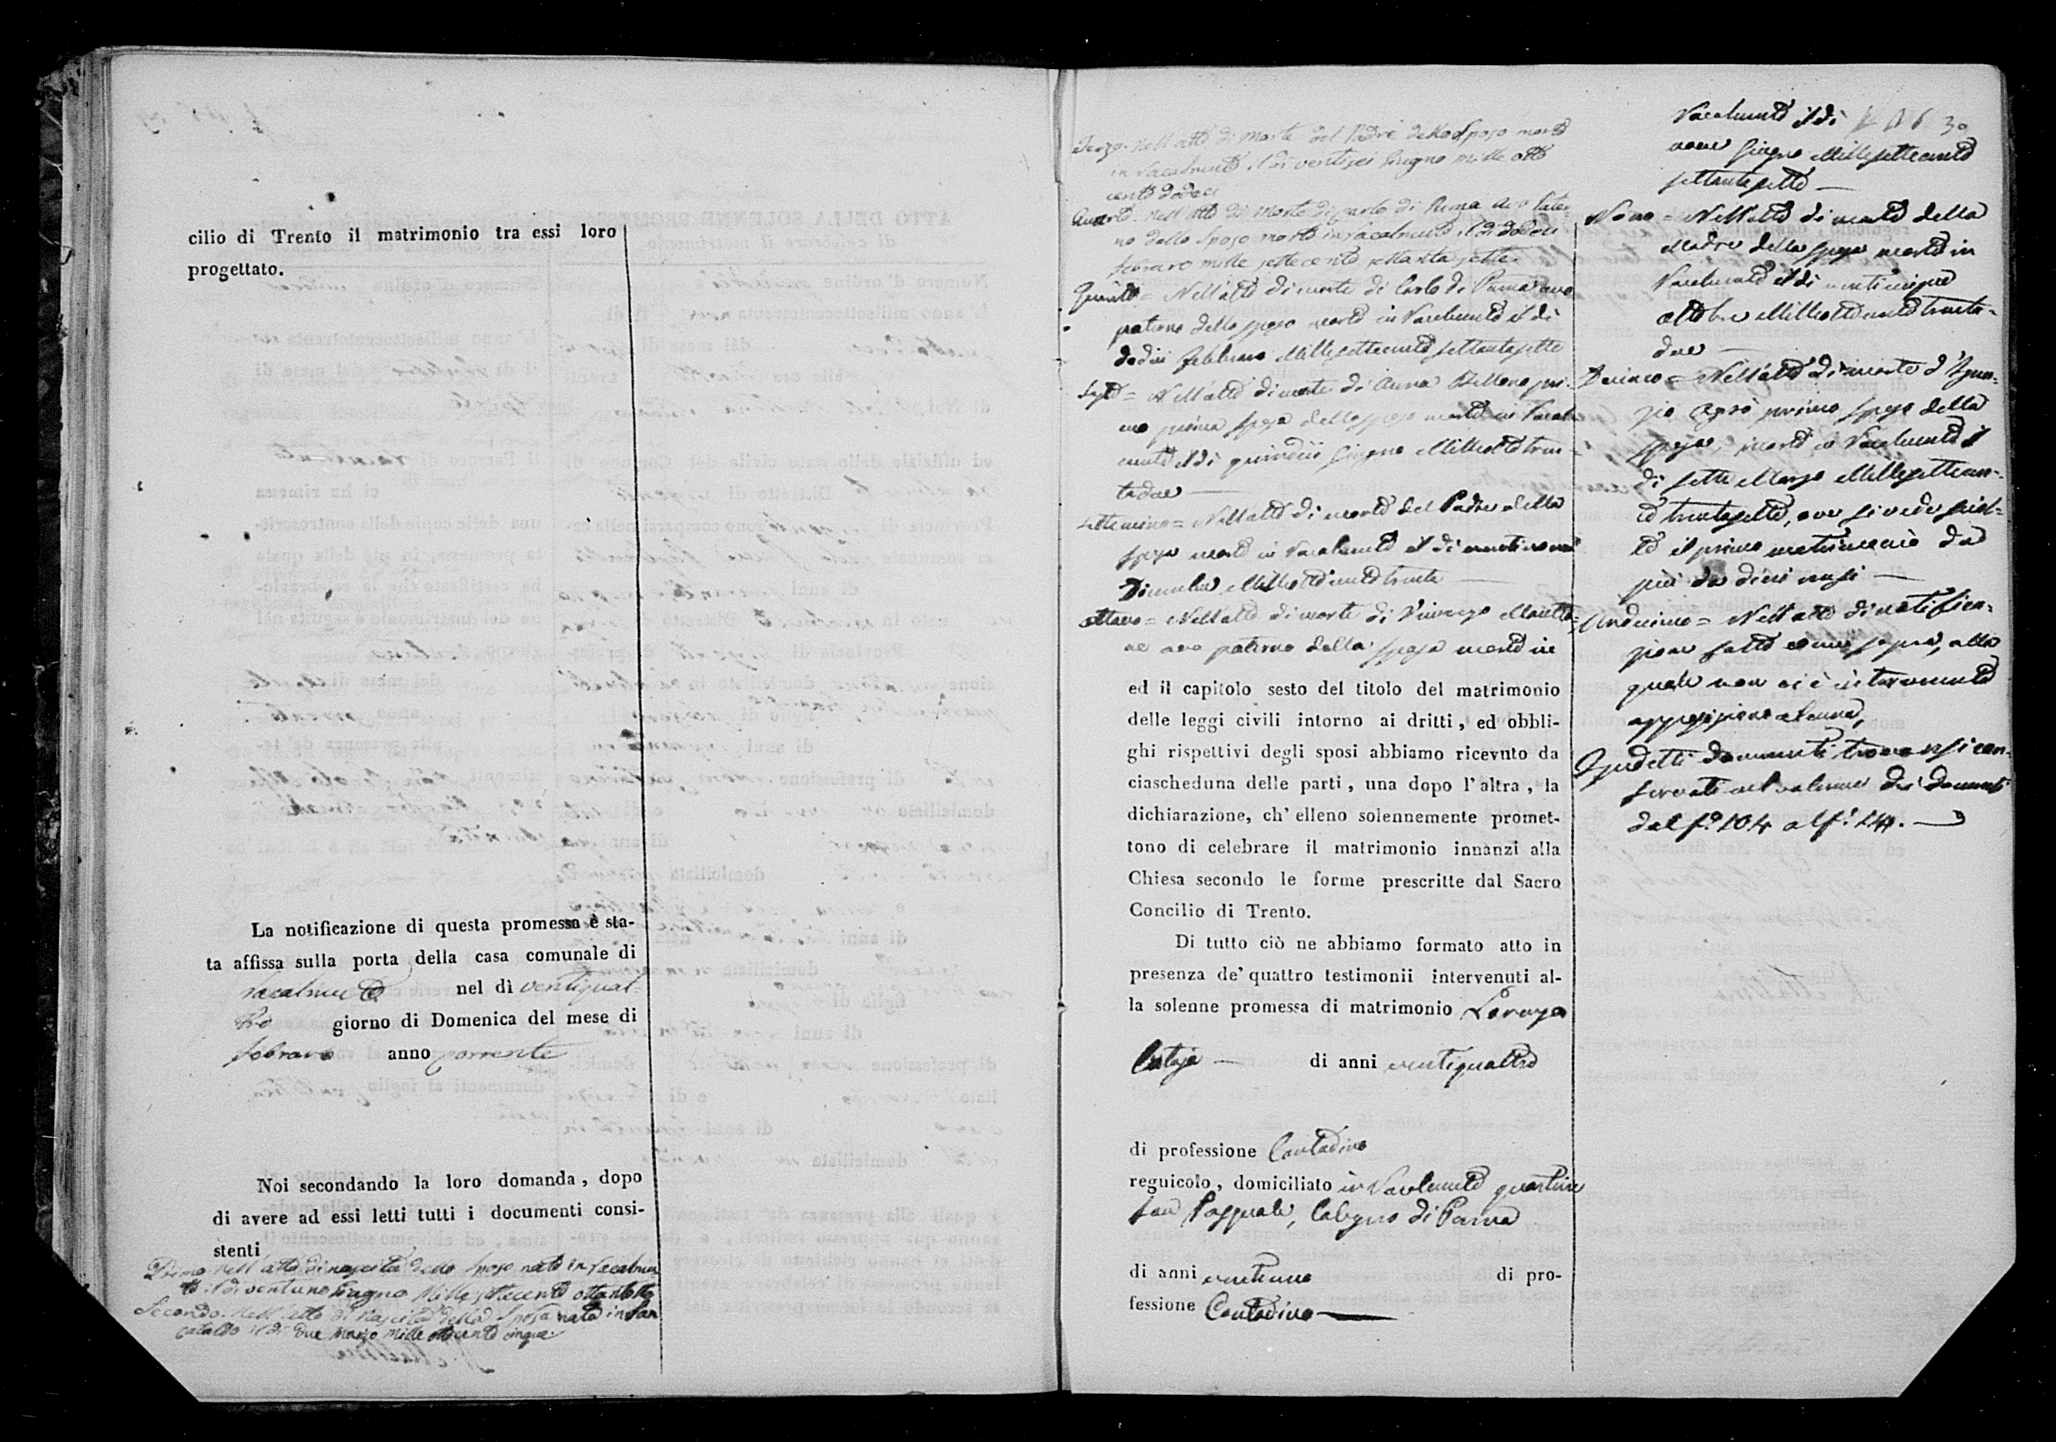 cilio di Trento il matrimonio tra essi loro
progettato.
La notificazione di questa promessa è sta-
ta affissa sulla porta della casa comunale di
Racalmuto nel dì ventiquat-
tro giorno di Domenica del mese di
febraro anno corrente
Noi secondando la loro domanda, dopo
di avere ad essi letti tutti i documenti consi-
stenti
Primo nell'atto di nascita dello sposo nato in Racalmu
to il dì ventuno Giugno Mille settecento ottantotto
Secondo. Nell'atto di nascita della Sposa nata in San
Cataldo il dì due Marzo Mille ottocento cinque
Terzo. Nell'atto di morte del Padre dello Sposo morto
in Racalmuto il dì ventisei Giugno mille otto
cento dodeci
Quarto. Nell'atto di morte di Carlo di Puma avo Pater
no dello Sposo morto in Racalmuto il dì dodeci
febraro mille settecento settanta sette
Quinto = Nell'atto di morte di Carlo di Puma avo
paterno dello sposo morto in Racalmuto il dì
dodici Febbraro Millesettecento settantasette
Sesto = Nell'atto di morte di Anna
prima sposa dello sposo morta in Racal
muto il dì quindici Giugno Milleottocentotren-
tadue
Settimino = Nell'atto di morte del Padre della
sposa morto in Racalmuto il dì ventinove
Dicembre Milleottocentotrenta
Ottavo = Nell'atto di morte di Vincenzo
avo paterno della sposa morto in
ed il capitolo sesto del titolo del matrimonio
delle leggi civili intorno ai dritti, ed obbli-
ghi rispettivi degli sposi abbiamo ricevuto da
ciascheduna delle parti, una dopo l'altra, la
dichiarazione, ch'elleno solennemente promet-
tono di celebrare il matrimonio innanzi alla
Chiesa secondo le forme prescritte dal Sacro
Concilio di Trento.
Di tutto ciò ne abbiamo formato atto in
presenza de' quattro testimonii intervenuti al-
la solenne promessa di matrimonio
di anni ventiquattro
di professione Contadino
regnicolo, domiciliato in Racalmuto quartiere
San Pasquale, Calogero di Puma
di anni ventiuno di pro-
fessione Contadino
Racalmuto il dì 30
nove Giugno Millesettecento
settantasette
Nono = Nell'atto di morte della
Madre della sposa morta in
Racalmuto il dì venticinque
Ottobre Milleottocentotrenta-
due
Decimo = Nell'atto di morte d'Igna-
zio primo sposo della
sposa, morto in Racalmuto il
dì sette Marzo Millesettecen-
totrentasette, ove si vede sciol-
to il primo matrimonio da
più di dieci mesi
Undecimo = Nell'atto di notifica-
zione fatta come sopra, alla
quale non vi è intervenuta
opposizione alcuna,
I sudetti documenti trovansi con-
servati nel volume dei documenti
dal f.° 104 al f.°